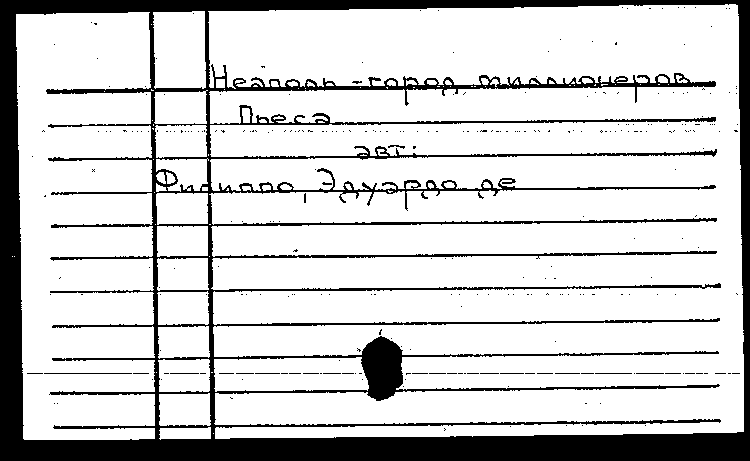 Неаполь - город миллионеров
Пьеса
авт:
Филиппо, Эдуардо де